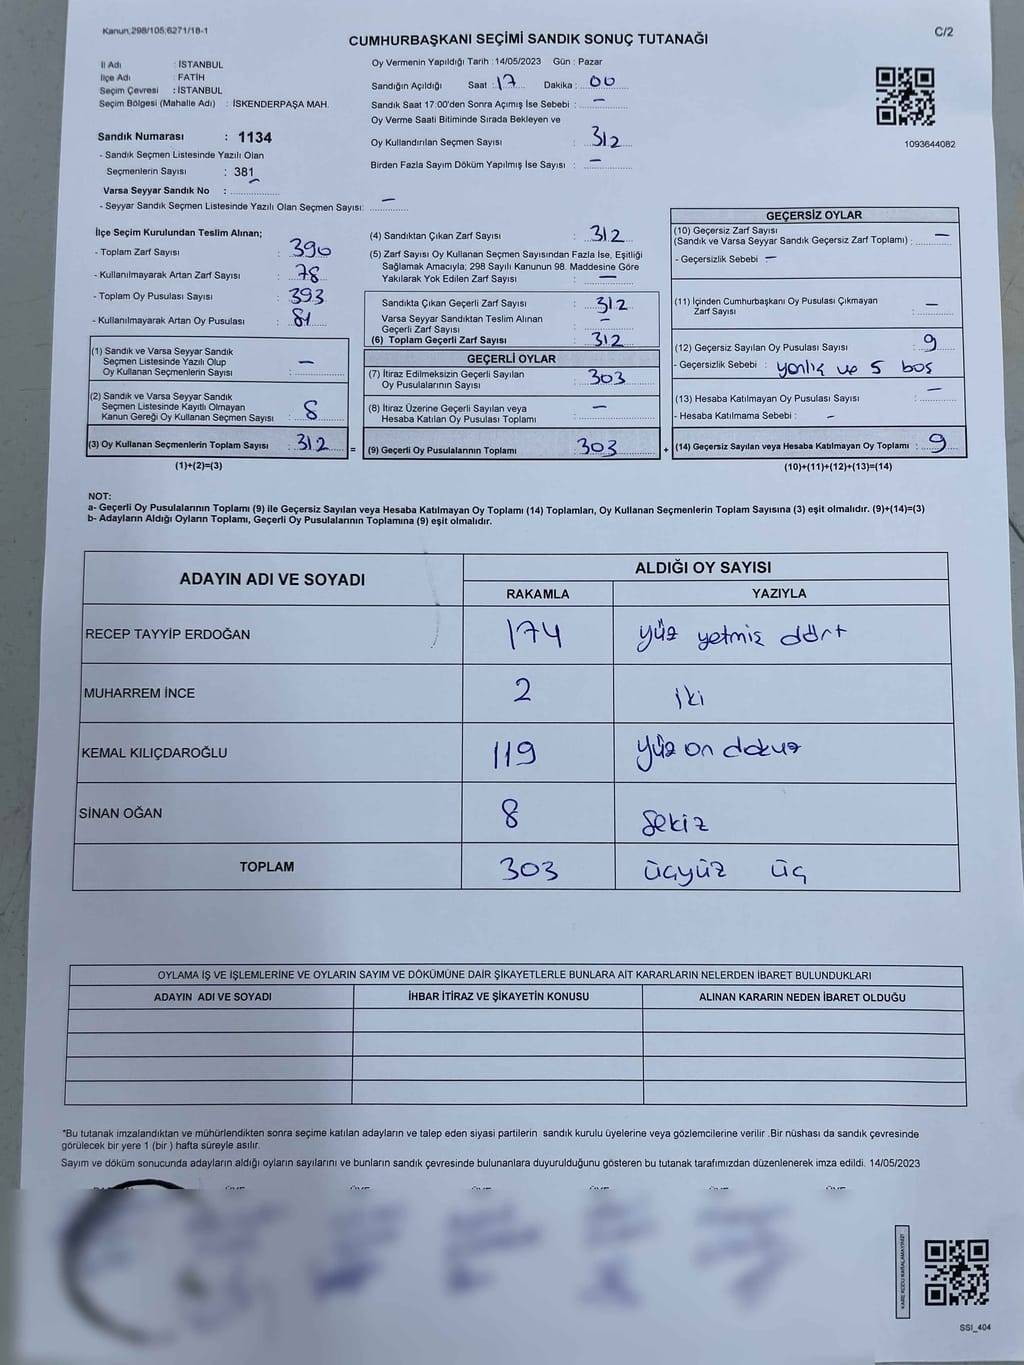 Kanun,298/105,6271/18-1
C/2
CUMHURBAŞKANI SEÇİMİ SANDIK SONUÇ TUTANAĞI
İl Adı : İSTANBUL
İlçe Adı : FATİH
Seçim Çevresi : İSTANBUL
Seçim Bölgesi (Mahalle Adı) : İSKENDERPAŞA MAH.
Sandık Numarası : 1134
- Sandık Seçmen Listesinde Yazılı Olan
Seçmenlerin Sayısı : 381
Varsa Seyyar Sandık No :
- Seyyar Sandık Seçmen Listesinde Yazılı Olan Seçmen Sayısı: —
Oy Vermenin Yapıldığı Tarih :14/05/2023 Gün : Pazar
Sandığın Açıldığı Saat : 17 Dakika : 00
Sandık Saat 17:00'den Sonra Açımış İse Sebebi : —
Oy Verme Saati Bitiminde Sırada Bekleyen ve
Oy Kullandırılan Seçmen Sayısı : 312
Birden Fazla Sayım Döküm Yapılmış İse Sayısı : —
1093644082
İlçe Seçim Kurulundan Teslim Alınan;
- Toplam Zarf Sayısı : 390
- Kullanılmayarak Artan Zarf Sayısı : 78
- Toplam Oy Pusulası Sayısı : 393
- Kullanılmayarak Artan Oy Pusulası : 81
(1) Sandık ve Varsa Seyyar Sandık
Seçmen Listesinde Yazılı Olup
Oy Kullanan Seçmenlerin Sayısı : —
(2) Sandık ve Varsa Seyyar Sandık
Seçmen Listesinde Kayıtlı Olmayan
Kanun Gereği Oy Kullanan Seçmen Sayısı : 8
(3) Oy Kullanan Seçmenlerin Toplam Sayısı : 312 =
(1)+(2)=(3)
(4) Sandıktan Çıkan Zarf Sayısı : 312
(5) Zarf Sayısı Oy Kullanan Seçmen Sayısından Fazla İse, Eşitliği
Sağlamak Amacıyla; 298 Sayılı Kanunun 98. Maddesine Göre
Yakılarak Yok Edilen Zarf Sayısı : —
Sandıkta Çıkan Geçerli Zarf Sayısı : 312
Varsa Seyyar Sandıktan Teslim Alınan
Geçerli Zarf Sayısı : —
(6) Toplam Geçerli Zarf Sayısı : 312
GEÇERLİ OYLAR
(7) İtiraz Edilmeksizin Geçerli Sayılan
Oy Pusulalarının Sayısı : 303
(8) İtiraz Üzerine Geçerli Sayılan veya
Hesaba Katılan Oy Pusulası Toplamı : —
(9) Geçerli Oy Pusulalarının Toplamı : 303 +
GEÇERSİZ OYLAR
(10) Geçersiz Zarf Sayısı
(Sandık ve Varsa Seyyar Sandık Geçersiz Zarf Toplamı) : —
- Geçersizlik Sebebi : —
(11) İçinden Cumhurbaşkanı Oy Pusulası Çıkmayan
Zarf Sayısı : —
(12) Geçersiz Sayılan Oy Pusulası Sayısı : 9
- Geçersizlik Sebebi : yanlış ve 5 boş
(13) Hesaba Katılmayan Oy Pusulası Sayısı : —
- Hesaba Katılmama Sebebi : —
(14) Geçersiz Sayılan veya Hesaba Katılmayan Oy Toplamı : 9
(10)+(11)+(12)+(13)=(14)
NOT:
a- Geçerli Oy Pusulalarının Toplamı (9) ile Geçersiz Sayılan veya Hesaba Katılmayan Oy Toplamı (14) Toplamları, Oy Kullanan Seçmenlerin Toplam Sayısına (3) eşit olmalıdır. (9)+(14)=(3)
b- Adayların Aldığı Oyların Toplamı, Geçerli Oy Pusulalarının Toplamına (9) eşit olmalıdır.
ADAYIN ADI VE SOYADI
ALDIĞI OY SAYISI
RAKAMLA YAZIYLA
RECEP TAYYİP ERDOĞAN 174 yüz yetmiş dört
MUHARREM İNCE 2 iki
KEMAL KILIÇDAROĞLU 119 yüz on dokuz
SİNAN OĞAN 8 Sekiz
TOPLAM 303 üçyüz üç
OYLAMA İŞ VE İŞLEMLERİNE VE OYLARIN SAYIM VE DÖKÜMÜNE DAİR ŞİKAYETLERLE BUNLARA AİT KARARLARIN NELERDEN İBARET BULUNDUKLARI
ADAYIN ADI VE SOYADI İHBAR İTİRAZ VE ŞİKAYETİN KONUSU ALINAN KARARIN NEDEN İBARET OLDUĞU
*Bu tutanak imzalandıktan ve mühürlendikten sonra seçime katılan adayların ve talep eden siyasi partilerin sandık kurulu üyelerine veya gözlemcilerine verilir .Bir nüshası da sandık çevresinde
görülecek bir yere 1 (bir ) hafta süreyle asılır.
Sayım ve döküm sonucunda adayların aldığı oyların sayılarını ve bunların sandık çevresinde bulunanlara duyurulduğunu gösteren bu tutanak tarafımızdan düzenlenerek imza edildi. 14/05/2023
KARE KODU KARALAMAYINIZ!
SSI_404